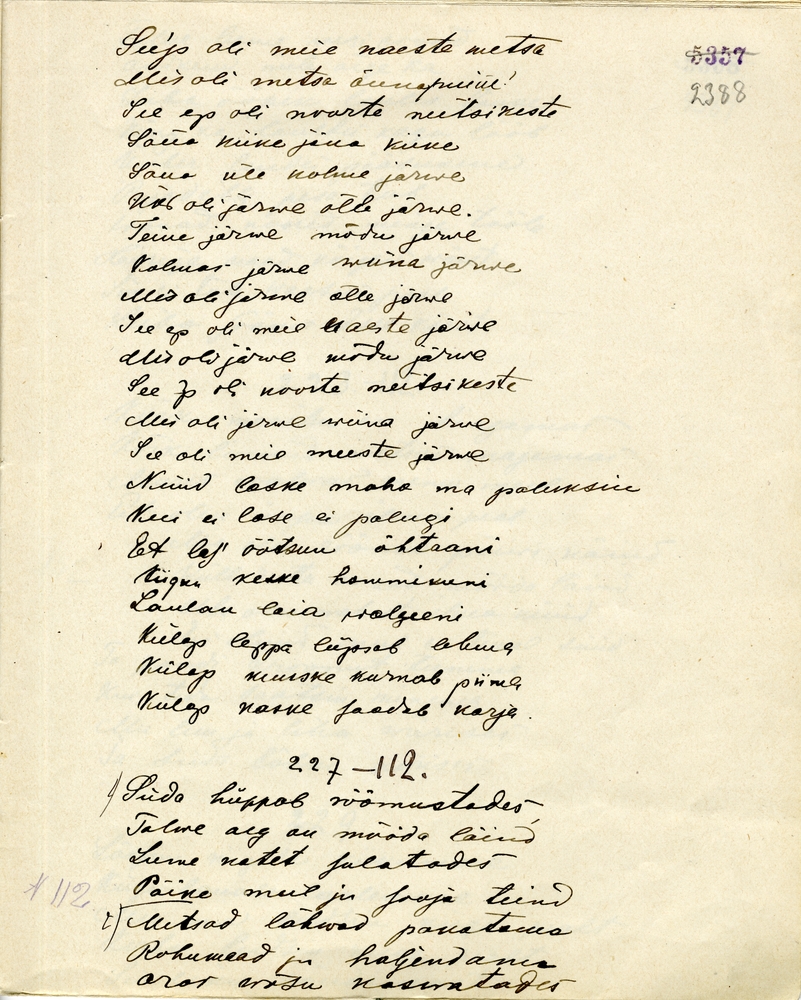 5357
2388
See'p oli meie naeste metsa
Mis oli metsa õunapuine!
See ep oli noorte neitsikeste
Sõua kiike jõua kiike
Sõua üle kolme järwe
Üks oli järwe õlle järwe.
Teine järwe mõdu järwe
Kolmas järwe wiina järwe
Mis oli järwe õlle järwe
See ep oli meie naeste järwe
Mis oli järwe mõdu järwe
See p oli noorte neitsikeste
Mis oli järwe wiina järwe
See oli meie meeste järwe
Nüüd laske maha ma paluksin
Kui ei lase ei palugi
Et las' öötsun õhtaani
Kiigun keske hommikuni
Laulan laia walgeeni
Külap leppa lüpsab lehma
Külap kuuske kurnab piima
Külap kaske saadab karja.
227–112.
1) Süda hüppab rõõmustades
Talwe aeg on mööda läind
Lume katet sulatades
Päike meil ju sooja teind
№ 112
2) Metsad lähwad panatama
Rohumead ju haljendama
oras wõsu kaswatades